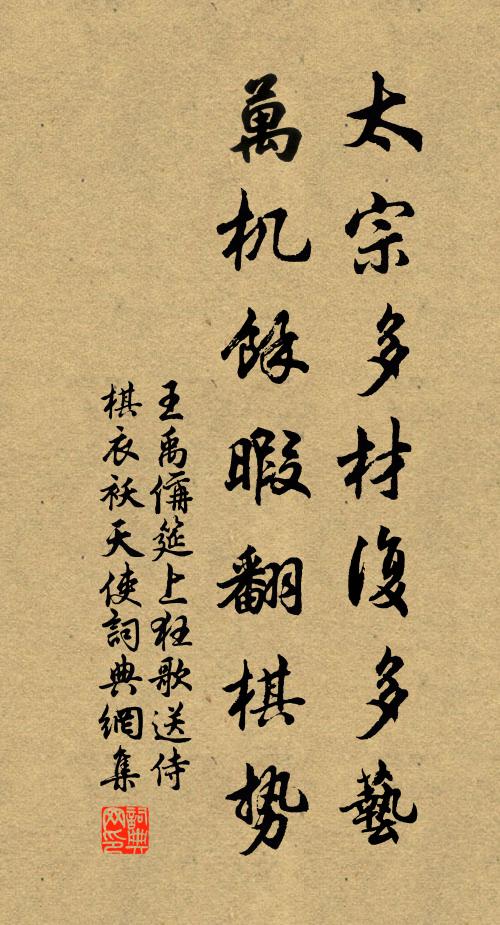 太宗多材復多藝
萬机餘暇翻棋勢
王禹偁筵上狂歌送侍
棋衣袄天使詞典網集
詞典网印